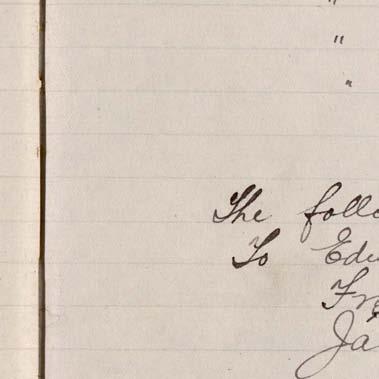 "
"
"
The follo
To Edw
Fr
Ja